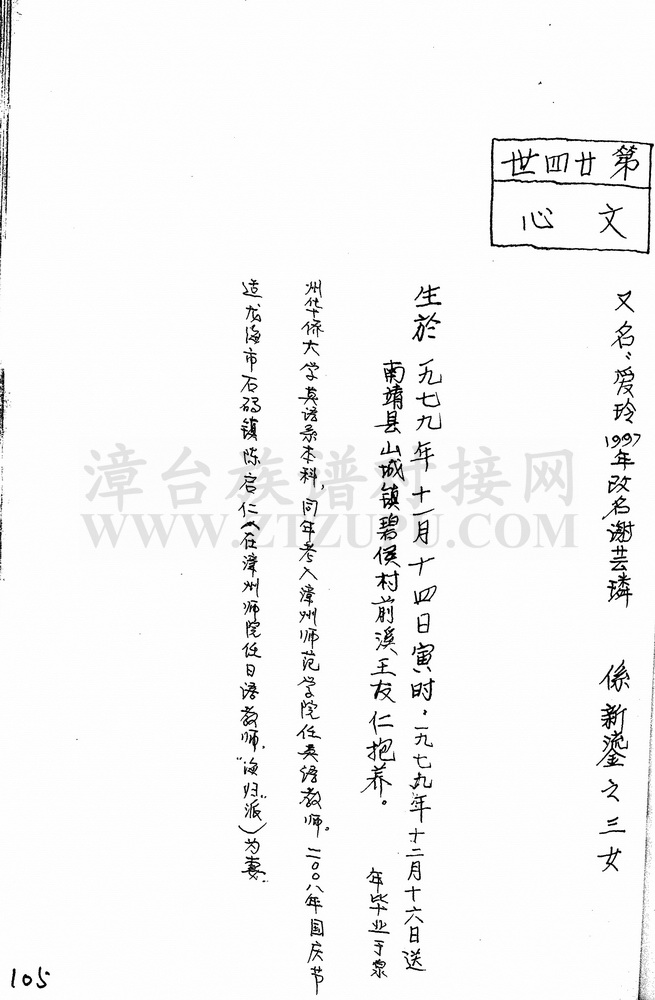 第廿四世
文心
又名：爱玲 1997年改名谢芸璘 係新鎏之三女
生於一九七九年十一月十四日寅时，一九七九年十二月十六日送
南靖县山城镇碧侯村前溪王友仁抱养。 年毕业于泉
州华侨大学英语系本科，同年考入漳州师范学院任英语教师。二00八年国庆节
适龙海市石码镇陈启仁（在漳州师院任日语教师，"海归"派）为妻。
漳台族谱对接网
WWW.ZTZUPU.COM
105